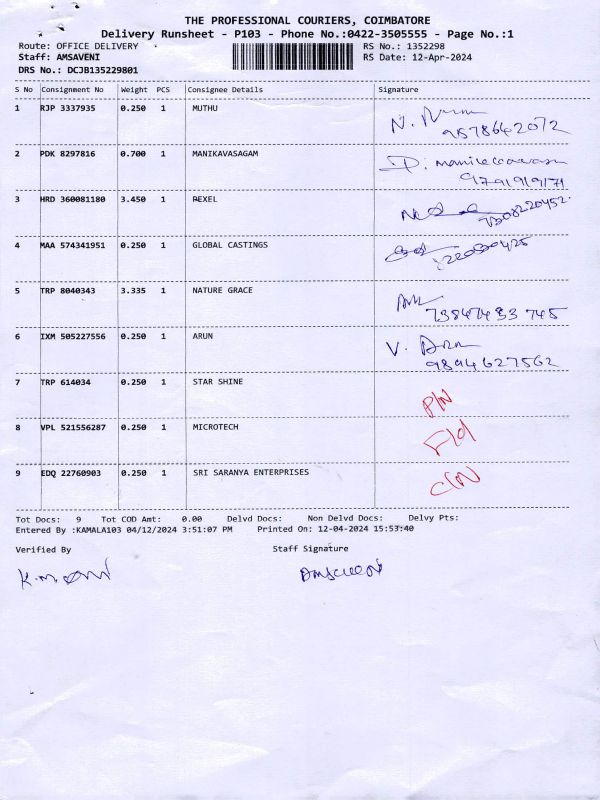 THE PROFESSIONAL COURIERS, COIMBATORE
Delivery Runsheet - P103 - Phone No.:0422-3505555 - Page No.:1
Route: OFFICE DELIVERY RS No.: 1352298
Staff: AMSAVENI RS Date: 12-Apr-2024
DRS No.: DCJB135229801
S No Consignment No Weight PCS Consignee Details Signature
1 RJP 3337935 0.250 1 MUTHU
N.
9578642072
2 PDK 8297816 0.700 1 MANIKAVASAGAM
D.
9791919171
3 HRD 360081180 3.450 1 REXEL
4 MAA 574341951 0.250 1 GLOBAL CASTINGS
5 TRP 8040343 3.335 1 NATURE GRACE
745
6 IXM 505227556 0.250 1 ARUN
V. Arun
9894627562
7 TRP 614034 0.250 1 STAR SHINE
P/N
8 VPL 521556287 0.250 1 MICROTECH
9 EDQ 22760903 0.250 1 SRI SARANYA ENTERPRISES
C/N
Tot Docs: 9 Tot COD Amt: 0.00 Delvd Docs: Non Delvd Docs: Delvy Pts:
Entered By :KAMALA103 04/12/2024 3:51:07 PM Printed On: 12-04-2024 15:53:40
Verified By Staff Signature